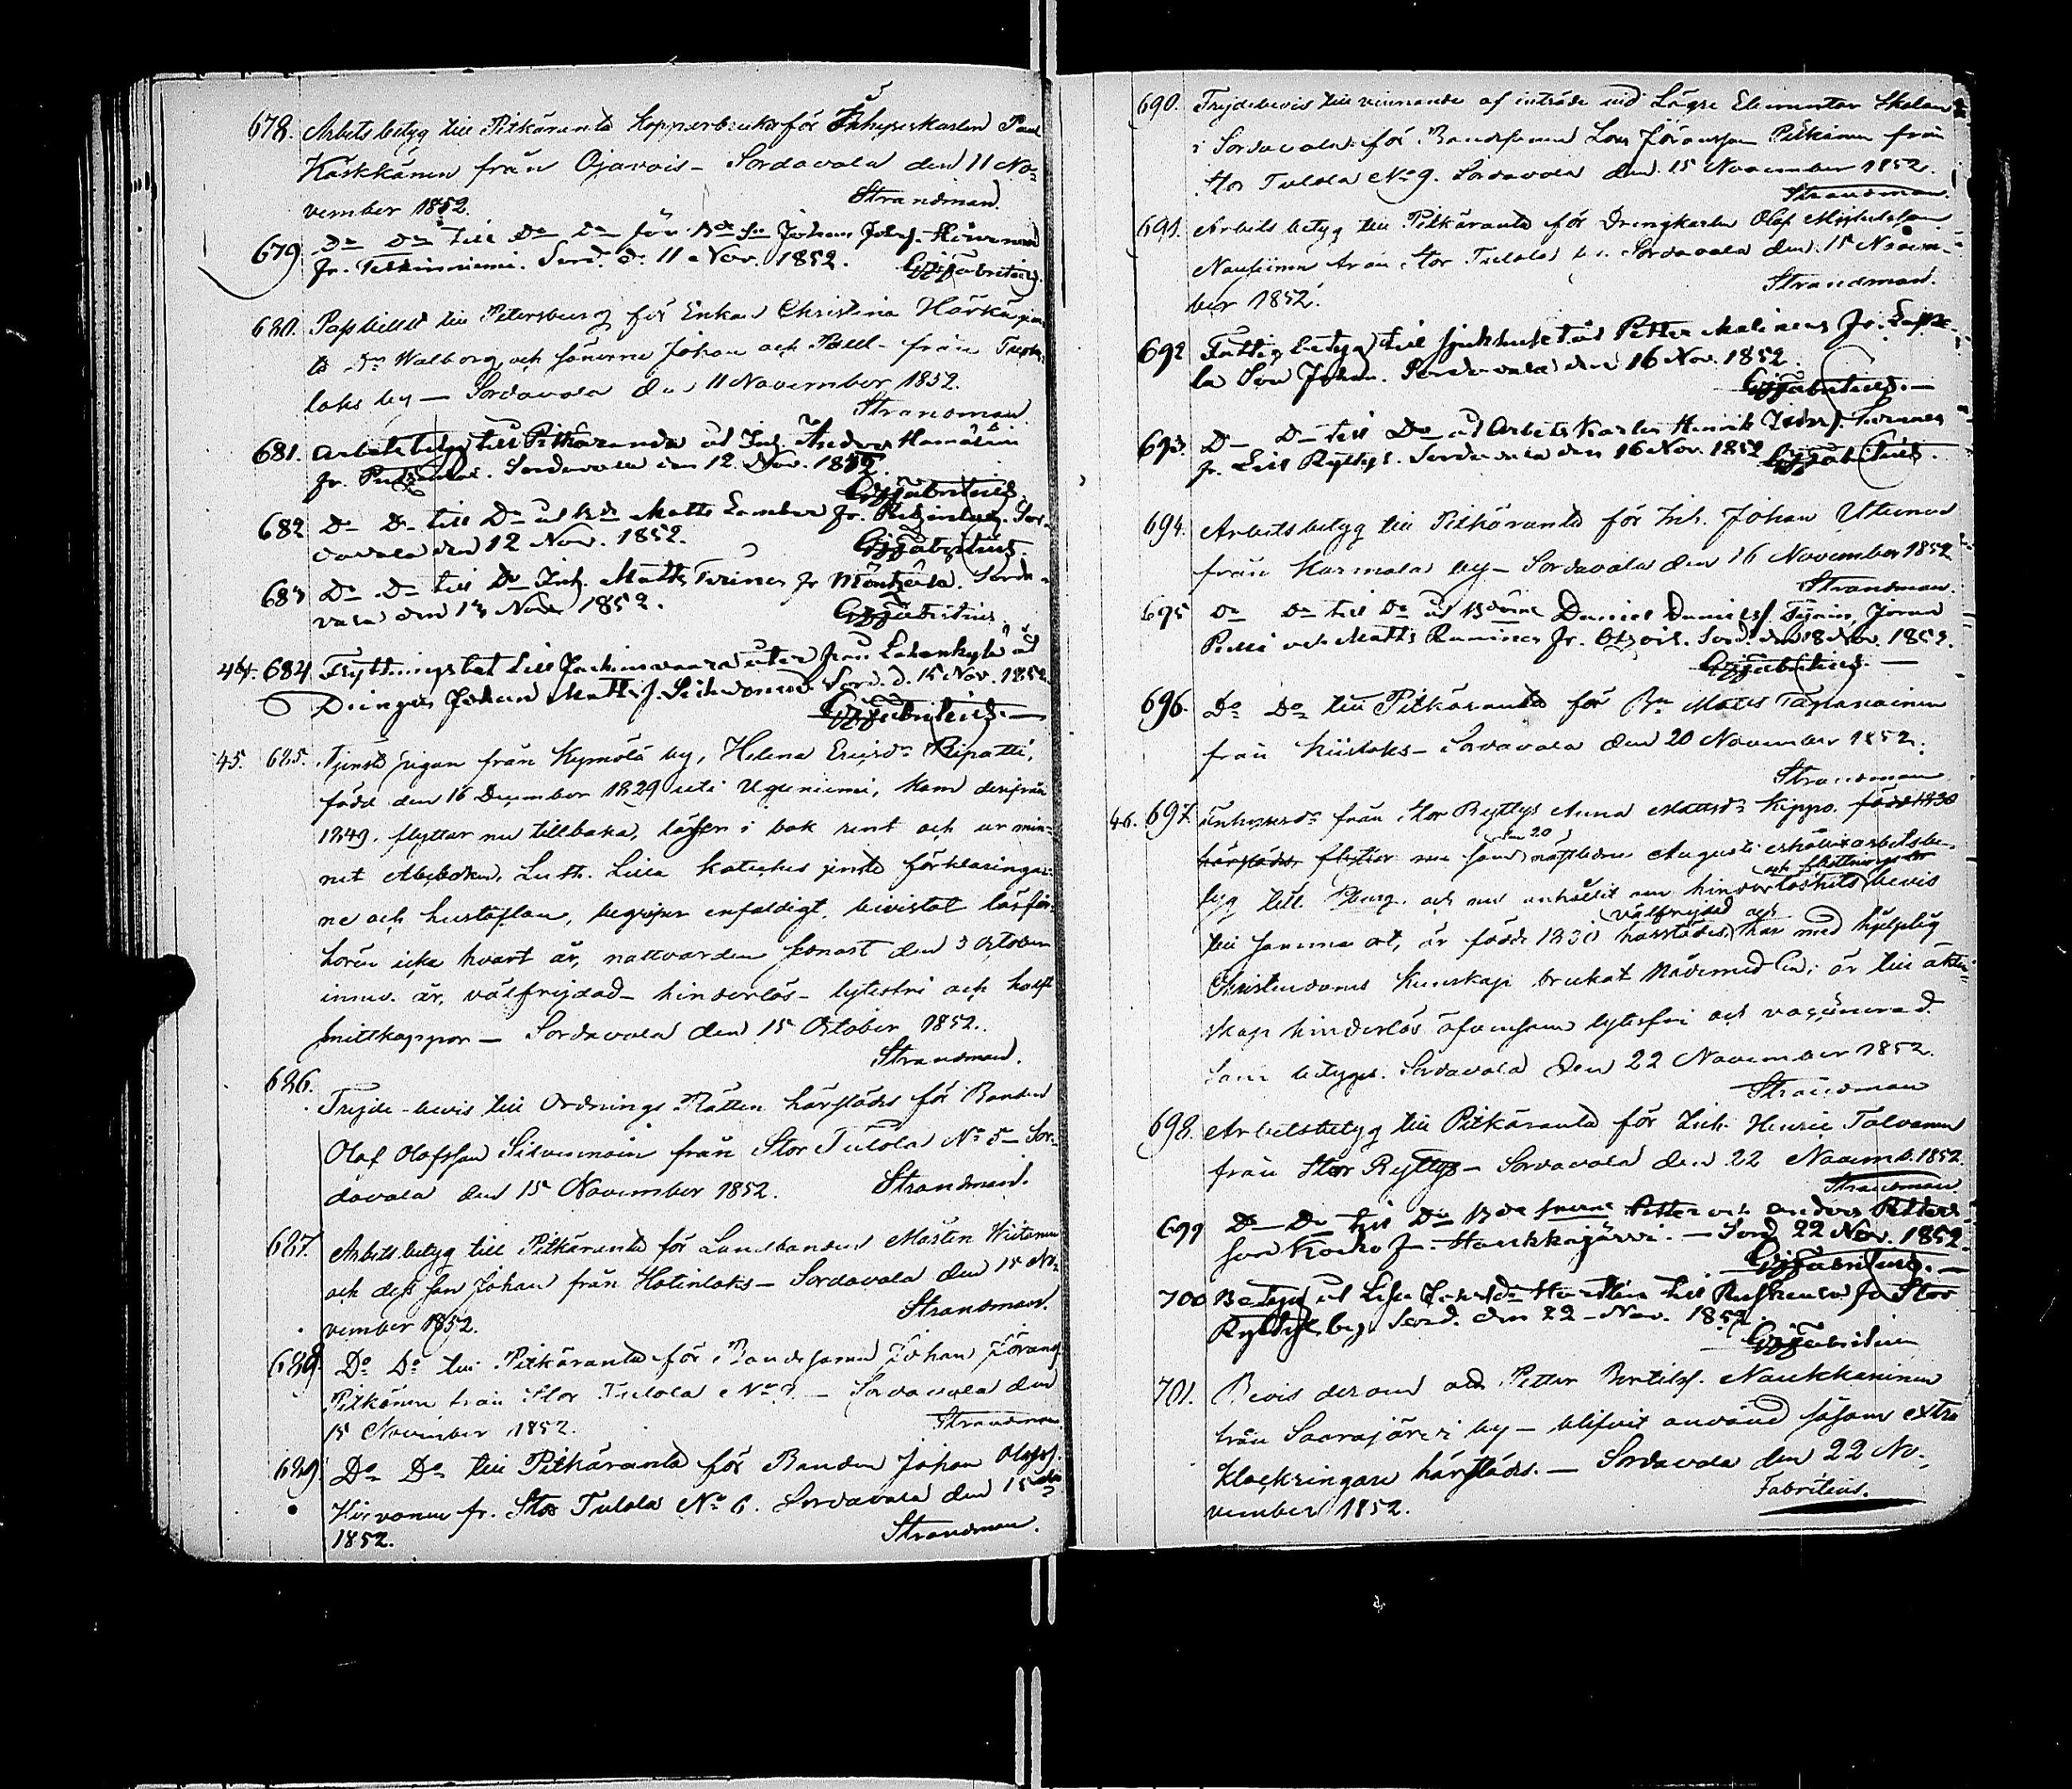 678. Arbetsbetyg till Pitkäranta Kopparbruk för Inhyseskarlen Paul
Kaskkänen från Ojavois – Sordavala den 11 No-
vember 1852. Strandman.
679 Do Do till Do Do för Bdes Sn Johan Johsf. Hirvonen
fr. Tetrinniemi. Sord. d. 11 Nov. 1852. GJFabritius.
680. Passbillet till Petersburg för Enkan Christina
Walborg och sönerna Johan och Paul – från
laks by – Sordavala den 11 November 1852.
Strandman
681. Arbetsbetyg till Pitkäranda åt Inh. Anders Hämäläin
fr. Sordavala den 12 Nov. 1852.
GJFabritius
682 Do Do till Do åt Bde Matts fr. Sor-
davala den 12 Nov. 1852. GJFabritius.
683 Do Do till Do Inh. Matts Turinen fr Mäntsälä. Sorda-
vala den 13 Nov 1852. GJFabritius.
44. 684 Flyttningsbet till från åt
Drängen Johan Matts f. Sord. d. 15 Nov. 1852
GJFabritius. —
45. 685. Tjenste pigan från Kymölä by, Helena Ericsdr Ripatti,
född den 16 December 1829 uti Uguniemi, kom derifrån
1849. flyttar nu tillbaka, läser i bok rent och ur min-
net Abcboken, Luth. Lilla Kateches jemte förklaringar-
ne och hustaflan, begriper enfaldigt, bivistat läsför-
hören icke hvart år, nattvarden senast den 3 October
innev. år, välfrejdad – hinderlös – lytesfri och haft
smittkoppor – Sordavala den 15 October 1852.
Strandman.
686.
Frejde-bevis till Ordnings Rätten härstädes för Bonden
Olof Olofsson Silvennoin från Stor Tulola No 5 – Sor-
davala den 15 November 1852. Strandman.
687. Arbetsbetyg till Pitkäranta för Landbonden Mårten
och dess son Johan från Hotinlaks – Sordavala den 15 No-
vember 1852. Strandman.
688 Do Do till Pitkäranta för Bondesonen Johan Göransf.
Pitkänen från Stor Tulola No 9 – Sordavala den
15 November 1852. Strandman
689 Do Do till Pitkäranta för Bonden Johan Olofsf.
Hirvonen fr. Stor Tulola No 6. Sordavala den 15 Nov
1852. Strandman.
690. Frejdebevis till vinnande af inträde vid Lägre Elementar Skolan
i Sordavala för Bondsonen Lars Göransson Pitkänen från
Stor Tulola No 9. Sordavala den 15 November 1852.
Strandman.
691. Arbets betyg till Pitkäranta för Drengkarlen Olof Michelsson
från Stor Tulola by. Sordavala den 15 Novem-
ber 1852. Strandman.
692 Fattig betyg till sjukhuset åt Petter Malinens fr.
la Son Johan. Sordavala den 16 Nov. 1852.
GJFabritius. —
693. Do Do till Do åt Arbets Karlen Henrik
fr. Lill Ryttys. Sordavala den 16 Nov. 1852 GJFabritius.
694. Arbetsbetyg till Pitkäranta för Inh. Johan
från Karmala by – Sordavala den 16 November 1852
Strandman.
695 Do Do till Do åt Bdöne Daniel Danielsf.
och Matts fr. Otsois. Sord. den 18 Nov. 1852.
GJFabritius. —
696. Do Do till Pitkäranta för Bn Matts Tapanainen
från Kiislaks – Sordavala den 20 November 1852.
Strandman
46. 697. Inhysesdr från Stor Ryttys Anna Mattsdr Kippo. född 1830
härstädes flyttar nu som den 20 nästledne Augusti erhållit arbetsbe-
tyg till och nu anhållit om hinderlöshets och flyttnings bevis
till samma ort, är född 1830 härstädes, välfrejdad och har med hjelplig
Christendoms Kunskap brukat Nådemedlen; är till äkten-
skap hinderlös äfvensom lytesfri och vaccinerad.
Som betygas. Sordavala den 22 November 1852.
Strandman
698. Arbetsbetyg till Pitkäranta för Inh. Henric Tolvanen
från Stor Ryttys – Sordavala den 22 Novemb. 1852.
Strandman.
699 Do Do till Do Bde sönerne Petter och Anders Petters-
son Kocko fr. Haukkajärvi. – Sord. 22 Nov. 1852.
GJFabritius. —
700 Betyg åt Lisa till fr Stor
Ryttys by. Sord. den 22 – Nov. 1852.
GJFabritius
701. Bevis derom att Petter Bertilsf. Naukkarinen
från Saarajärvi by – blifvit använd såsom extra
Klockringare härstädes. – Sordavala den 22 No-
vember 1852. Fabritius.